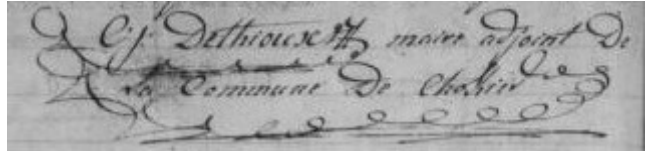 C: j: Dethiouxs maire adjoint De
la Commune De Chokier